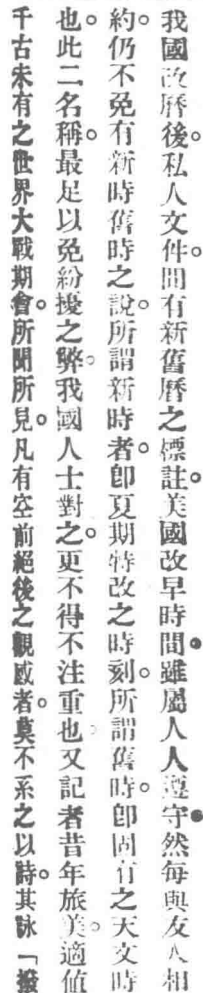 我國改曆後。私人文件。間有新舊曆之標註。美國改早時間●雖屬人人遵守●然每與友人相
約。仍不免有新時舊時之說。所謂新時者。卽夏期特改之時刻。所謂舊時。卽固有之天文時
也。此二名稱。最足以免紛擾之弊。我國人士對之。更不得不注重也。又記者昔年旅美。適値
千古未有之世界大戰期會。所聞所見。凡有空前絕後之觀感者。莫不系之以詩。其詠「撥